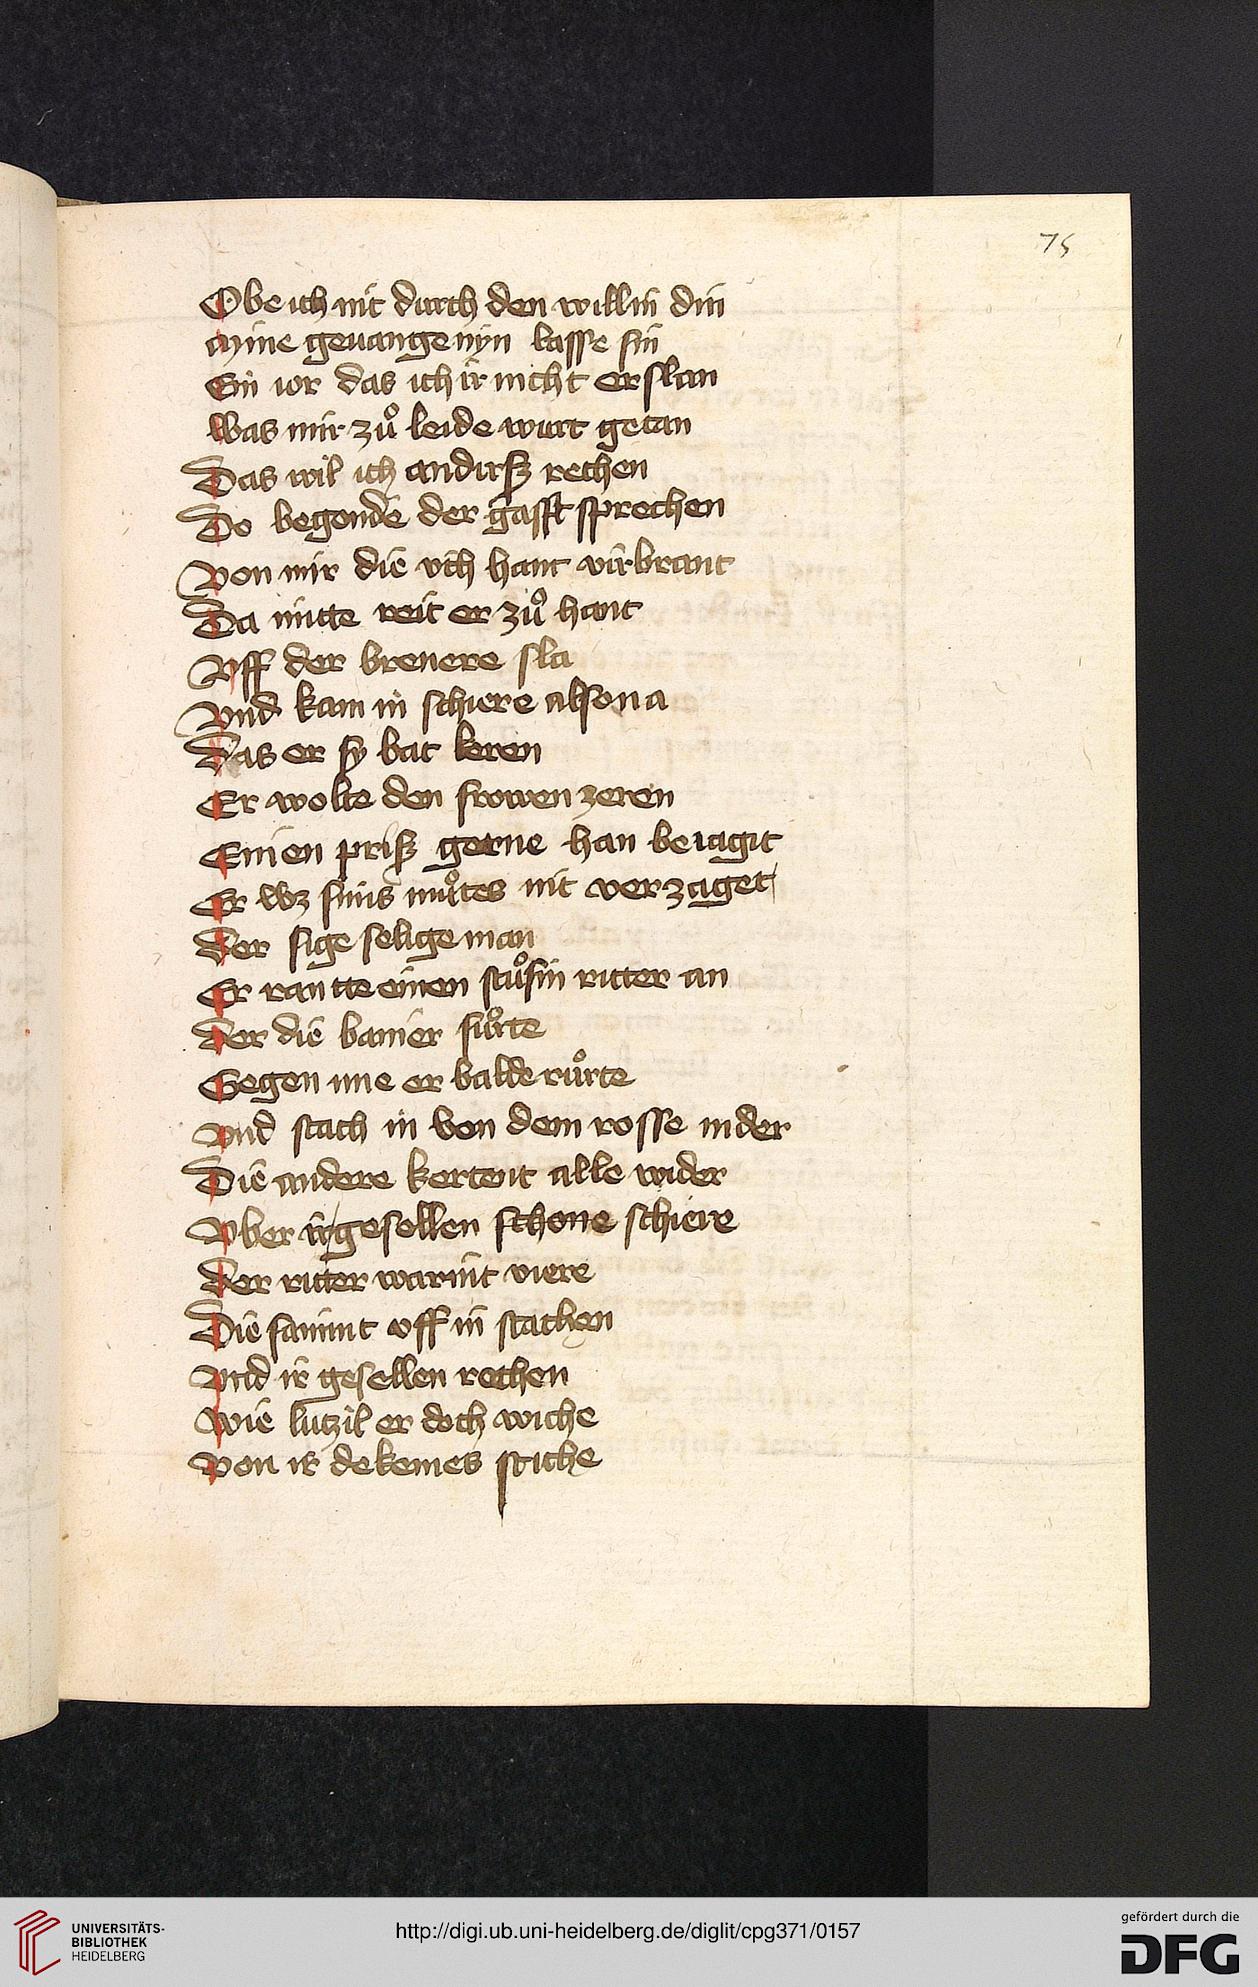 75
Obe ich nit durch den willin din
Mine geuangenyn lasse sin
Ein ior das ich ir nicht erslan
Was mir zuͦ leide wurt getan
Das wil ich andirß rechen
Do begonde der gasst sprechen
Von mir die vch hant virbrant
Da mitte reit er zuͦ hant
Vff der breuere sla
Vnd kam in schiere alsona
Das er sy bat keren
Er wolte den frowen zeren
Einen priß gerne han beiagit
Er wz sinis muͦtes nit verzaget
Der sige selige man
Er rantte einen stuͦsin ritter an
Der die banier fuͦrte
Gegen ime er balde ruͦrte
Vnd stach in von dem rosse nider
Die andere kertent alle wider
Vber ir gesellen schone schiere
Der ritter warint viere
Die samint vff in stachen
Vnd ir gesellen rechen
Wie lutzil er doch wiche
Von ir dekeines stiche
UNIVERSITÄTS-
BIBLIOTHEK
HEIDELBERG
http://digi.ub.uni-heidelberg.de/diglit/cpg371/0157
gefördert durch die
DFG